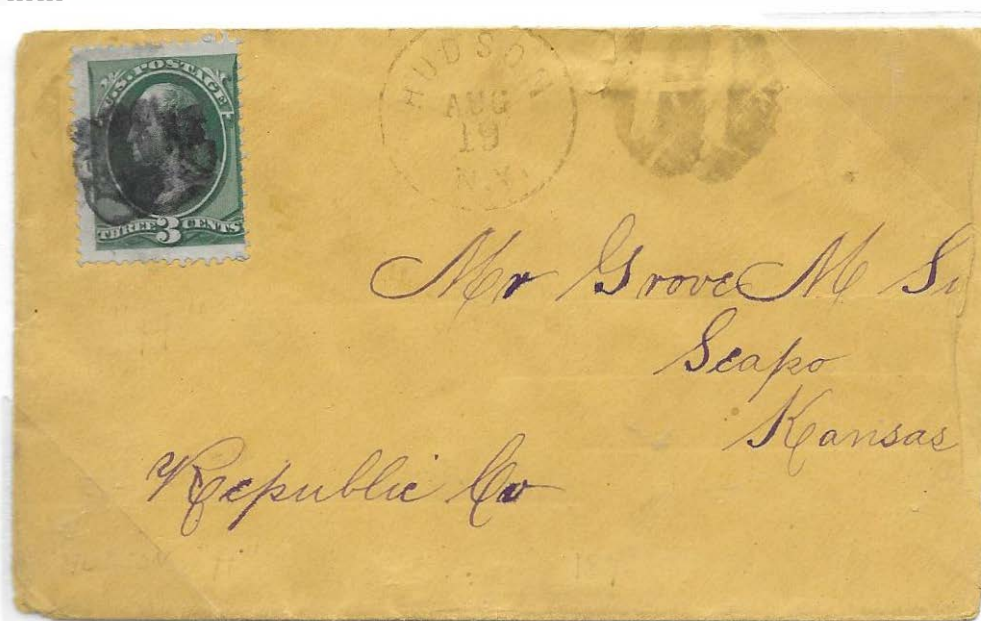 U.S. POSTAGE
THREE 3 CENTS
HUDSON
AUG
19
N.Y.
Mr Grove M
Scapo
Kansas
Republic Co